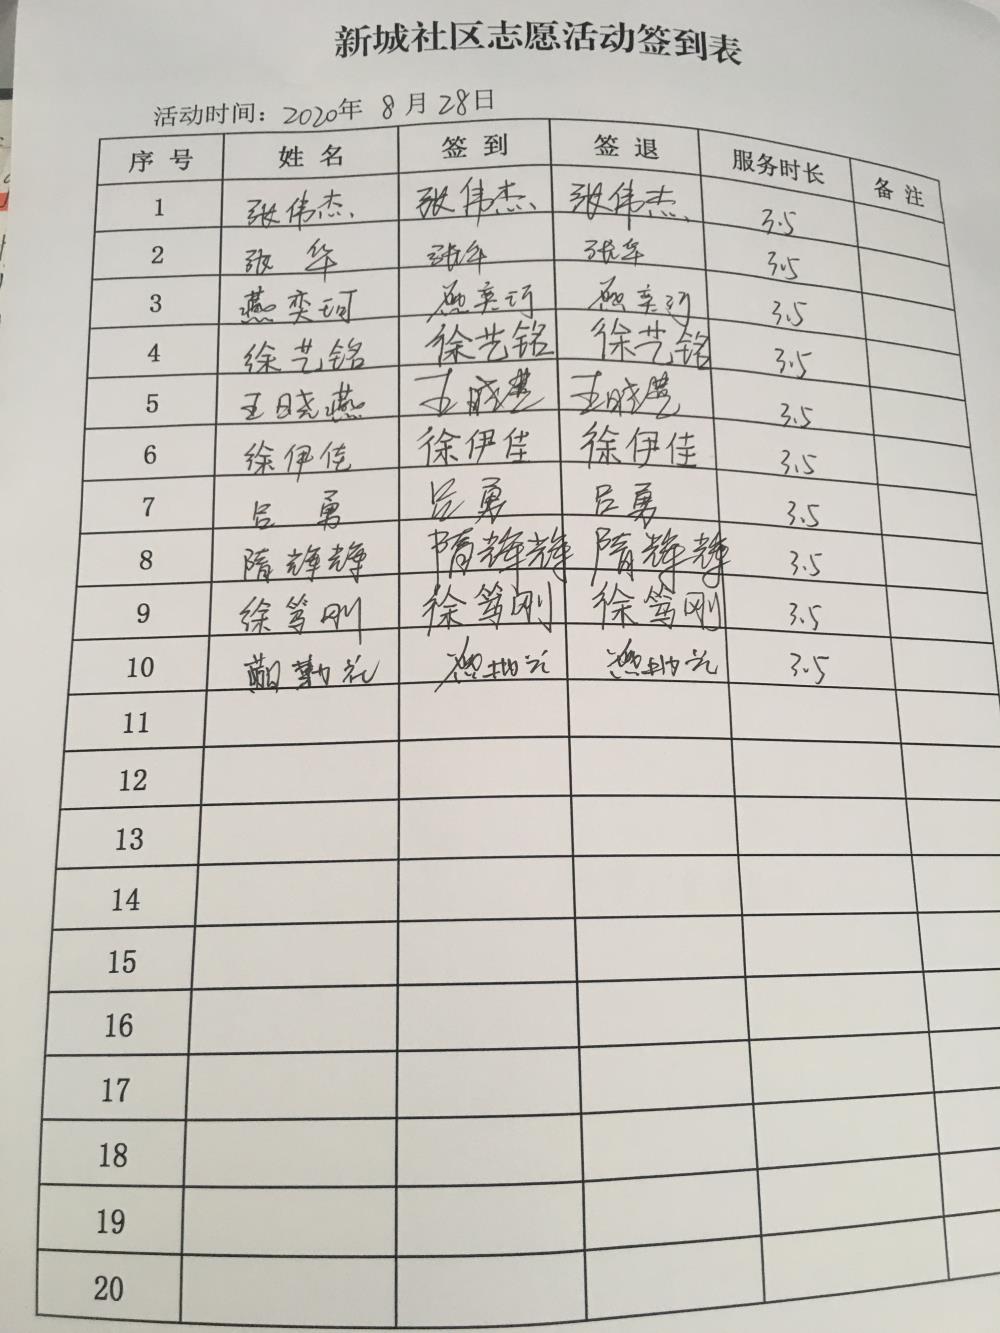 新城社区志愿活动签到表
活动时间：2020年 8月28日
序号 姓名 签到 签退 服务时长 备注
1 张伟杰 张伟杰 张伟杰 3.5
2 张华 张华 张华 3.5
3 燕奕珂 燕奕珂 燕奕珂 3.5
4 徐艺铭 徐艺铭 徐艺铭 3.5
5 王晓燕 王晓燕 王晓燕 3.5
6 徐伊佳 徐伊佳 徐伊佳 3.5
7 吕勇 吕勇 吕勇 3.5
8 隋辉辉 隋辉辉 隋辉辉 3.5
9 徐笃刚 徐笃刚 徐笃刚 3.5
10 3.5
11
12
13
14
15
16
17
18
19
20